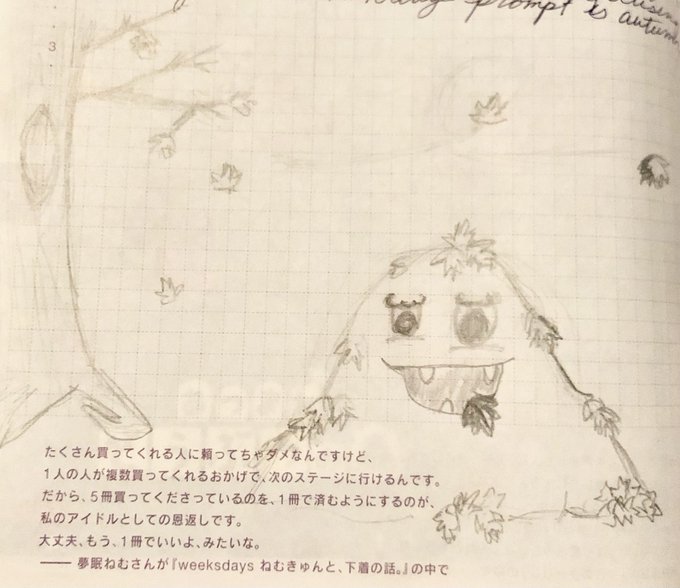 prompt is autum
3
たくさん買ってくれる人に頼ってちゃダメなんですけど、
1人の人が複数買ってくれるおかげで、次のステージに行けるんです。
だから、5冊買ってくださっているのを、1冊で済むようにするのが、
私のアイドルとしての恩返しです。
大丈夫、もう、1冊でいいよ、みたいな。
―― 夢眠ねむさんが『weeksdays ねむきゅんと、下着の話。』の中で